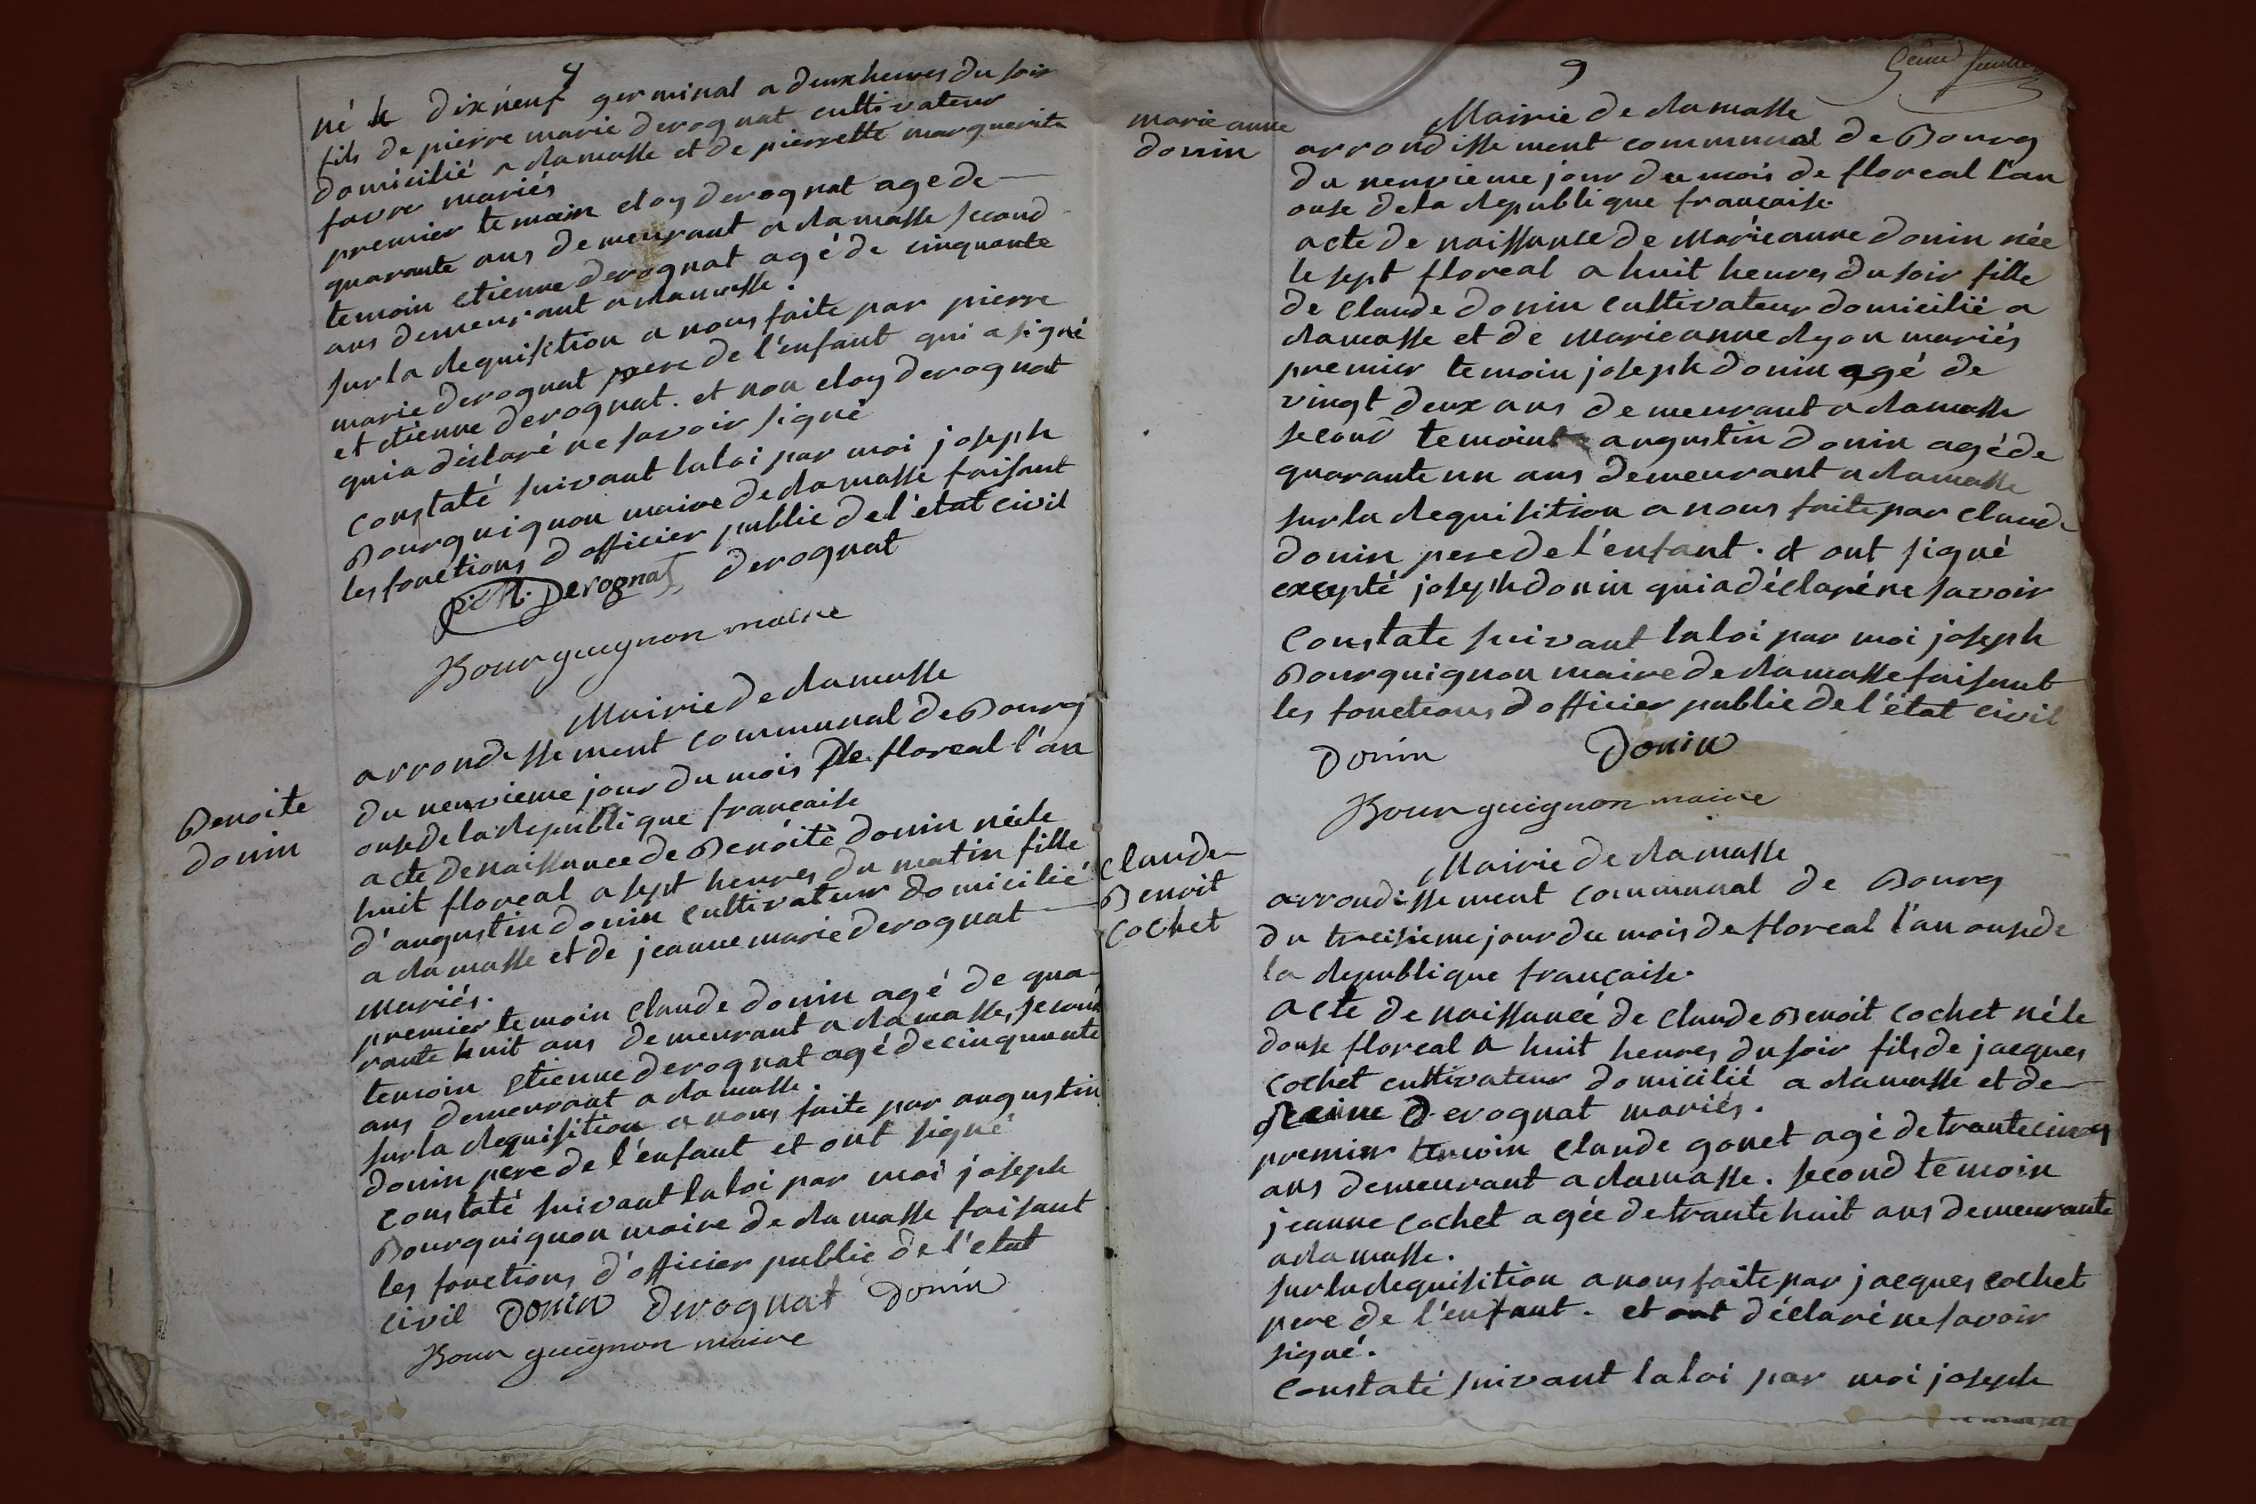 né le dix neuf germinal a deux heures du soir
fils de pierre marie derognat cultivateur
domicilié a ramasse et de pierrette marguerite
favre mariés
premier temoin eloy derognat age de
quarante ans demeurant a ramasse second
temoin etienne derognat agé de cinquante
ans demeurant a ramasse.
sur la requisition a nous faite par pierre
marie derognat pere de l'enfant qui a signé
et etienne derognat. et non eloy derognat
qui a déclaré ne savoir signé
constaté suivant la loi par moi joseph
Bourguignon maire de ramasse faisant
les fonctions d officier public de l'état civil
P. M. Derognat derognat
Bourguignon maire
Benoite
donin
Mairie de ramasse
arrondissement communal de Bourg
du neuvieme jour du mois de floreal l'an
onse de la republique française
acte de naissance de Benoite donin née le
huit floreal a sept heures du matin fille
d'augustin donin cultivateur domicilié
a ramasse et de jeanne marie derognat
mariés.
premier temoin claude donin agé de qua
rante huit ans demeurant a ramasse, second
temoin etienne derognat agé de cinquante
ans demeurant a ramasse.
sur la requisition a nous faite par augustin
donin père de l'enfant et ont signé
constaté suivant la loi par moi joseph
Bourguignon maire de ramasse faisant
les fonctions d'officier public de l'etat
civil donin derognat donin
Bourguignon maire
9
marie anne
donin
Mairie de ramasse
arrondissement communal de Bourg
du neuvieme jour du mois de floreal l'an
onse de la republique française.
acte de naissance de marie anne donin née
le sept floreal a huit heures du soir fille
de claude donin cultivateur domicilié a
ramasse et de marie anne ryon mariés
premier temoin joseph donin agé de
vingt deux ans demeurant a ramasse
second temoint augustin donin agé de
quarante un ans demeurant a ramasse
sur la requisition a nous faite par claude
donin pere de l'enfant. et ont signé
excepté joseph donin qui a déclaré ne savoir
constate suivant la loi par moi joseph
Bourguignon maire de ramasse faisant
les fonctions d officier public de l'état civil
donin donin
Bourguignon maire
claude
Benoit
cochet
Mairie de ramasse
arrondissement communal de Bourg
du treisieme jour du mois de floreal l'an onse de
la republique française.
acte de naissance de claude Benoit cochet né le
douse floreal a huit heures du soir fils de jacques
cochet cultivateur domicilié a ramasse et de
reine derognat mariés.
premier temoin claude gonet agé de trante cinq
ans demeurant a ramasse. second temoin
jeanne cochet agée de trante huit ans demeurante
a ramasse.
sur la requisition a nous faite par jacques cochet
pere de l'enfant. et ont déclaré ne savoir
signé.
constaté suivant la loi par moi joseph